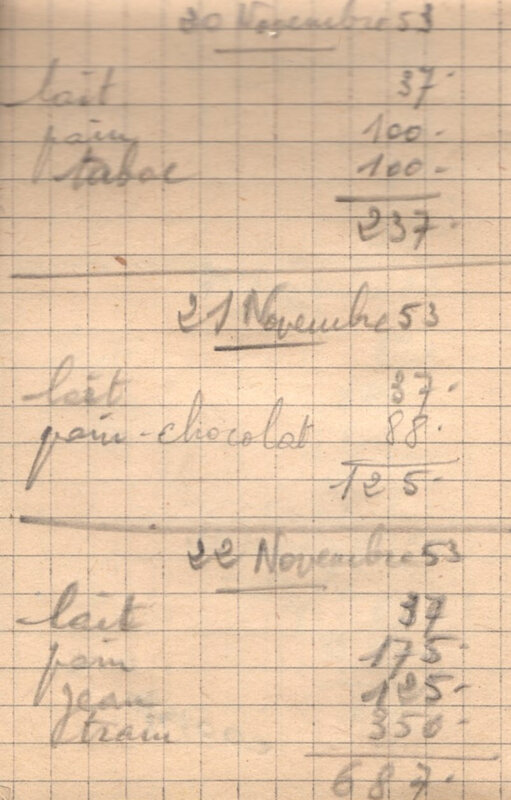 20 Novembre 53
lait 37-
pain 100-
tabac 100-
237-
21 Novembre 53
lait 37-
pain-chocolat 88-
125-
22 Novembre 53
lait 37
pain 175-
Jean 125-
train 350-
687-